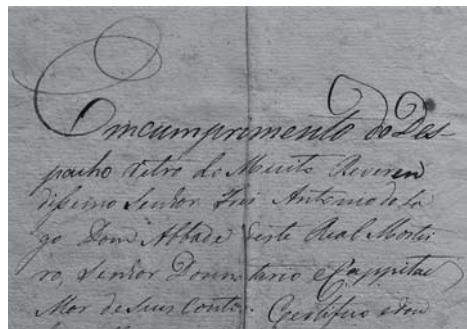 Emcumprimento do Des-
pacho retro do Muito Reveren
dissimo Senhor Frei Antonio de La
go Dom Abbade deste Real Mostei
ro, Senhor Donatario e Cappitaõ
Mor de seus Coutos. Certifico e dou